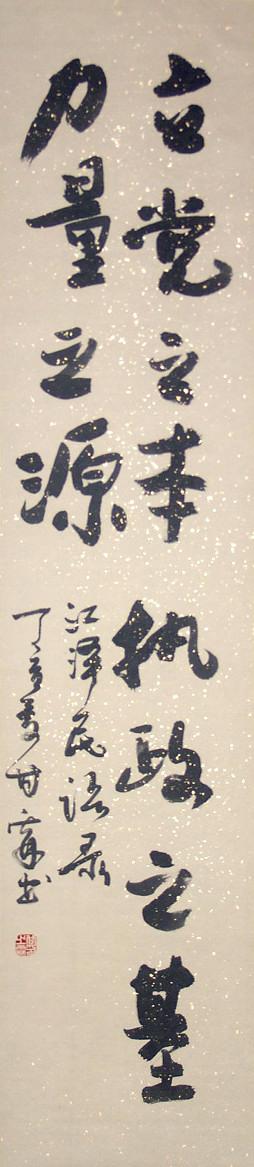 立党之本执政之基
力量之源
江泽民语录
丁亥夏甘书